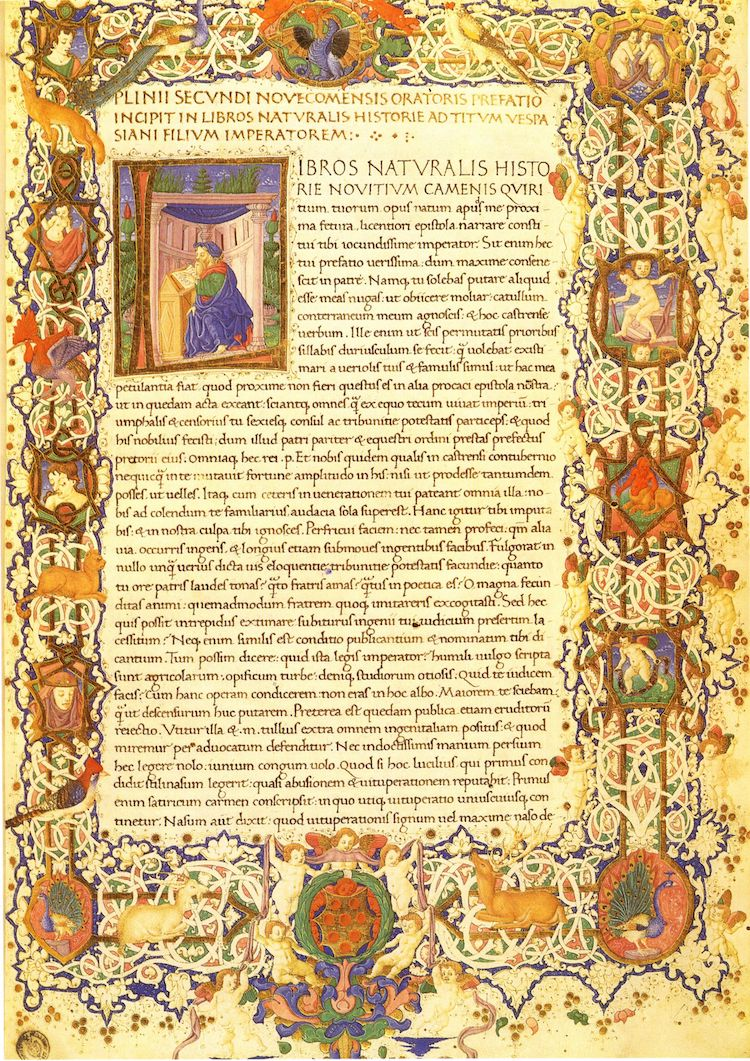 PLINII SECVNDI NOVECOMENSIS ORATORIS PREFATIO
INCIPIT IN LIBROS NATVRALIS HISTORIE AD TITVM VESPA
SIANI FILIVM IMPERATOREM:
LIBROS NATVRALIS HISTO
RIE NOVITIVM CAMENIS QVIRI
tium tuorum opus natum apud me proxi
ma fetura, licentiori epistola narrare consti
tui tibi iocundissime imperator. Sit enim hec
tui prefatio uerissima: dum maxime consene
scit in patre. Namq, tu solebas putare aliquid
esse meas nugas: ut obiicere moliar catullum
conterraneum meum agnoscis: & hoc castrense
uerbum. Ille enim ut scis permutatis prioribus
sillabis duriusculum se fecit: q̄ uolebat existi
mari a ueriolis tuis & famulis simul: ut hac mea
petulantia fiat quod proxime non fieri questus es in alia procaci epistola nostra:
ut in quedam acta exeant: sciantq, omnes q̄ ex equo tecum uiuat imperiū: tri
umphalis & censorius tu sexiesq, consul ac tribunitie potestatis particeps: & quod
his nobilius fecisti: dum illud patri pariter & equestri ordini prestas prefectus
pretorii eius. Omniaq, hec rei .p. Et nobis quidem qualis in castrensi contubernio
nequicq̄ in te mutauit fortune amplitudo in his: nisi ut prodesse tantumdem
posses: ut uelles. Itaq, cum ceteris in uenerationem tui pateant omnia illa: no-
bis ad colendum te familiarius audacia sola superest. Hanc igitur tibi imputa
bis: & in nostra culpa tibi ignosces. Perfricui faciem: nec tamen profeci: qm̄ alia
uia occurris ingens: & longius etiam submoues ingentibus facibus. Fulgorat in
nullo unq̄ uerius dicta uis eloquentie: tribunitie potestatis facundie: quanto
tu ore patris laudes tonas: q̄to fratris amas: q̄tus in poetica es? O magna fecun
ditas animi: quemadmodum fratrem quoq, imitareris excogitasti. Sed hec
quis possit intrepidus extimare subiturus ingenii tui iudicium presertim la
cessitum? Neq, enim similis est conditio publicantium & nominatum tibi di
cantium. Tum possim dicere: quid ista legis imperator? humili uulgo scripta
sunt agricolarum, opificum turbe: deniq, studiorum otiosis. Quid te iudicem
facis? Cum hanc operam condicerem: non eras in hoc albo. Maiorem te sciebam
q̄ ut descensurum huc putarem. Preterea est quedam publica etiam eruditorū
reiectio. Vtitur illa & .m. tullius extra omnem ingenii aliam positus: & quod
miremur per aduocatum defenditur. Nec indoctissimis manium persium
hec legere nolo: iunium congum uolo. Quod si hoc lucilius qui primus con
didit stili nasum legerit: quasi abusionem & uituperationem reputabit: Primus
enim satiricum carmen conscripsit: in quo utiq, uituperatio uniuscuiusq, con
tinetur. Nasum aūt dixit: quod uituperationis signum uel maxime naso de